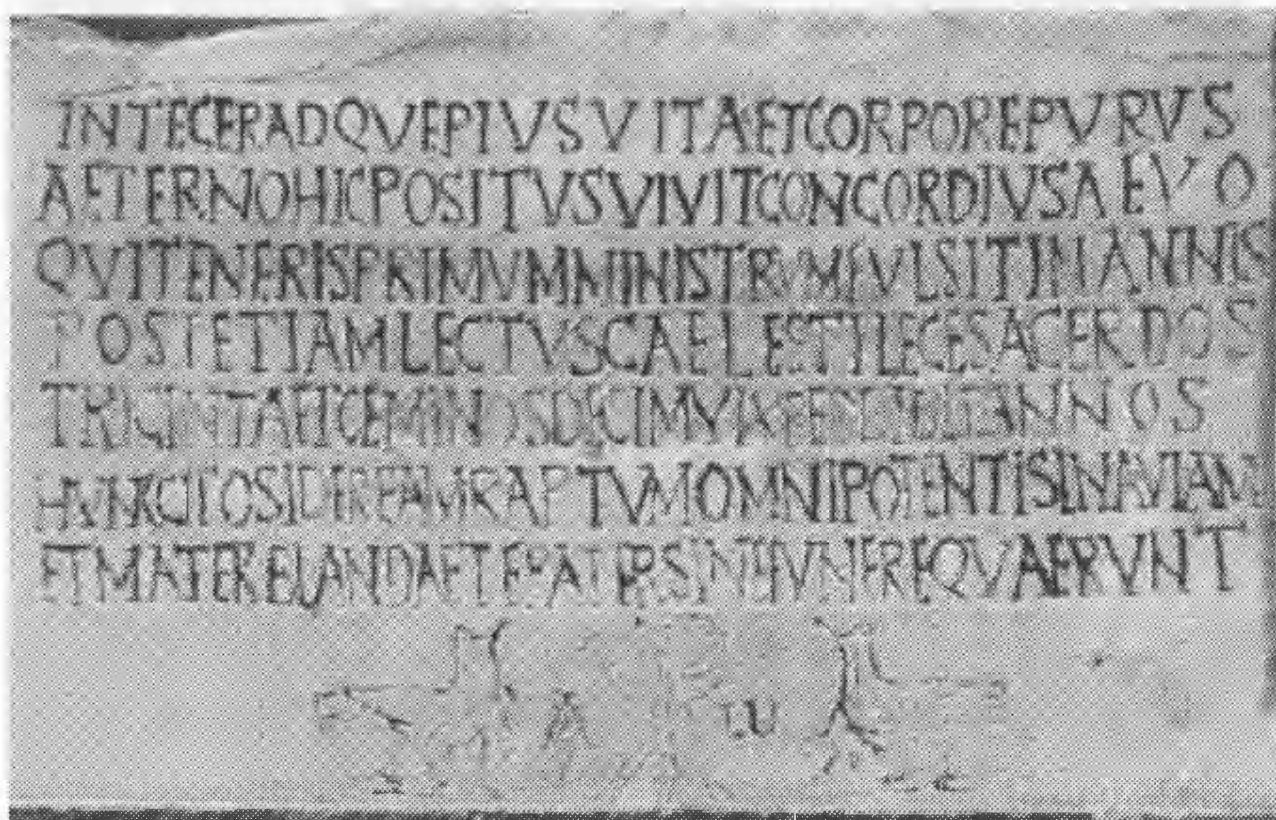 INTEGERADQVEPIVSVITAETCORPOREPVRVS
AETERNOHICPOSITVSVIVITCONCORDIVSAEVO
QVITENERISPRIMVMMINISTRVMFVLSITINANNIS
POSTETIAMLECTVSCAELESTILEGESACERDOS
TRIGINTAETGEMINOSDECIMVIXREDDIDITANNOS
HVNCCITOSIDEREAMRAPTVMOMNIPOTENTISINAVLAM
ETMATERBLANDAETFRATERSINEFVNEREQVAERVNT
A ω